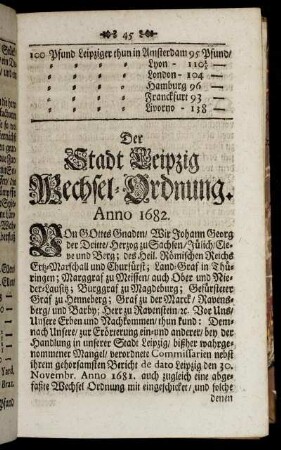 45
100 Pfund Leipziger thun in Amsterdam 95 Pfund/
Lyon - 110½ —
London - 104 —
Hamburg 96 —
Franckfurt 93
Livorno - 138 —
Der
Stadt Leipzig
Wechsel-Ordnung.
Anno 1682.
Von GOttes Gnaden/ Wir Johann Georg
der Dritte/ Hertzog zu Sachsen/ Jülich/ Cle-
ve und Berg; des Heil. Römischen Reichs
Ertz-Marschall und Churfürst; Land-Graf in Thü-
ringen; Marggraf zu Meissen/ auch Ober und Nie-
der-Lausitz; Burggraf zu Magdeburg; Gefürsteter
Graf zu Henneberg; Graf zu der Marck/ Ravens-
berg/ und Barby; Herr zu Ravenstein ꝛc. Vor Uns/
Unsere Erben und Nachkommen/ thun kund: Dem-
nach Unser/ zur Erörterung ein- und anderer/ bey der
Handlung in unserer Stadt Leipzig/ bißher wahrge-
nommener Mängel/ verordnete Commissarien nebst
ihrem gehorsamsten Bericht de dato Leipzig den 30.
Novembr. Anno 1681. auch zugleich eine abge-
faßte Wechsel Ordnung mit eingeschicket/ und solche
denen